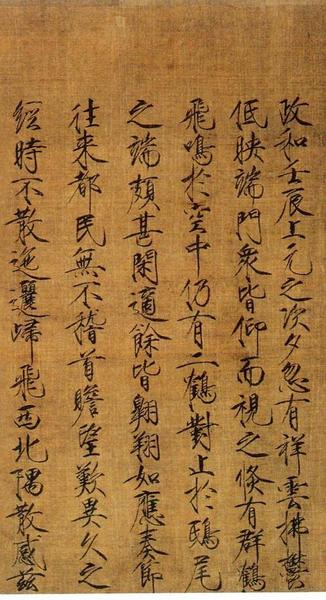 政和壬辰上元之次夕忽有祥雲拂鬱
低映端門衆皆仰而視之倏有群鶴
飛鳴於空中仍有二鶴對止於鴟尾
之端頗甚閑適餘皆翱翔如應奏節
往来都民無不稽首瞻望歎異久之
經時不散迤邐歸飛西北隅散感茲